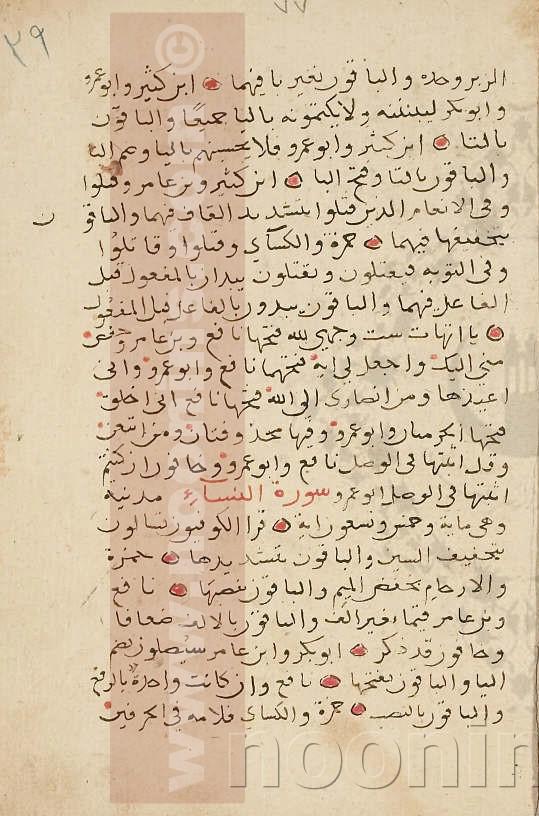 ٧٧
٣٩
الزبر وحده والباقون بغير با فيهما ابن كثير وابو عمرو
وابو بكر ليبيننه ولا يكتمونه باليا جميعا والباقون
بالتا ابن كثير وابو عمرو فلا يحسبنهم باليا وضم البا
والباقون بالتا وفتح البا ابن كثير وبن عامر وقتلوا
وفى الانعام الذين قتلوا بتشديد القاف فيهما والباقو
ن
بتخفيفها فيهما حمزة والكسآي وقتلوا وقاتلوا
وفى التوبه فيقتلون ويقتلون يبدان بالمفعول قبل
الفاعل فيهما والباقون يبدون بالفاعل قبل المفعول
يا اتها ست وجهي لله فتحها نافع وبن عامر وحفص
مني انك واجعل لي اية فتحهما نافع وابو عمرو وانى
اعيذها ومن انصارى الى الله فتحها نافع انى اخلق
فتحها الحرميان وابو عمرو وفيها محذوفتان ومن اتبعن
وقل اثبتها فى الوصل نافع وابو عمرو وخافون ان كنتم
اثبتها فى الوصل ابو عمرو سورة النساء مدنية
وهى ماية وخمس وسبعون اية قرا الكوفيون تسالون
بتخفيف السين والباقون بتشديدها حمزة
والارحام بخفض الميم والباقون بنصبها نافع
وبن عامر قيما بغير الف والباقون بالالف ضعافا
وخافوا قد ذكر ابو بكر وابن عامر سيصلون بضم
اليا والباقون بفتحها نافع وان كانت واحدة بالرفع
والباقون بالنصب حمزة والكسآي فلامه فى الحرفين
noonin